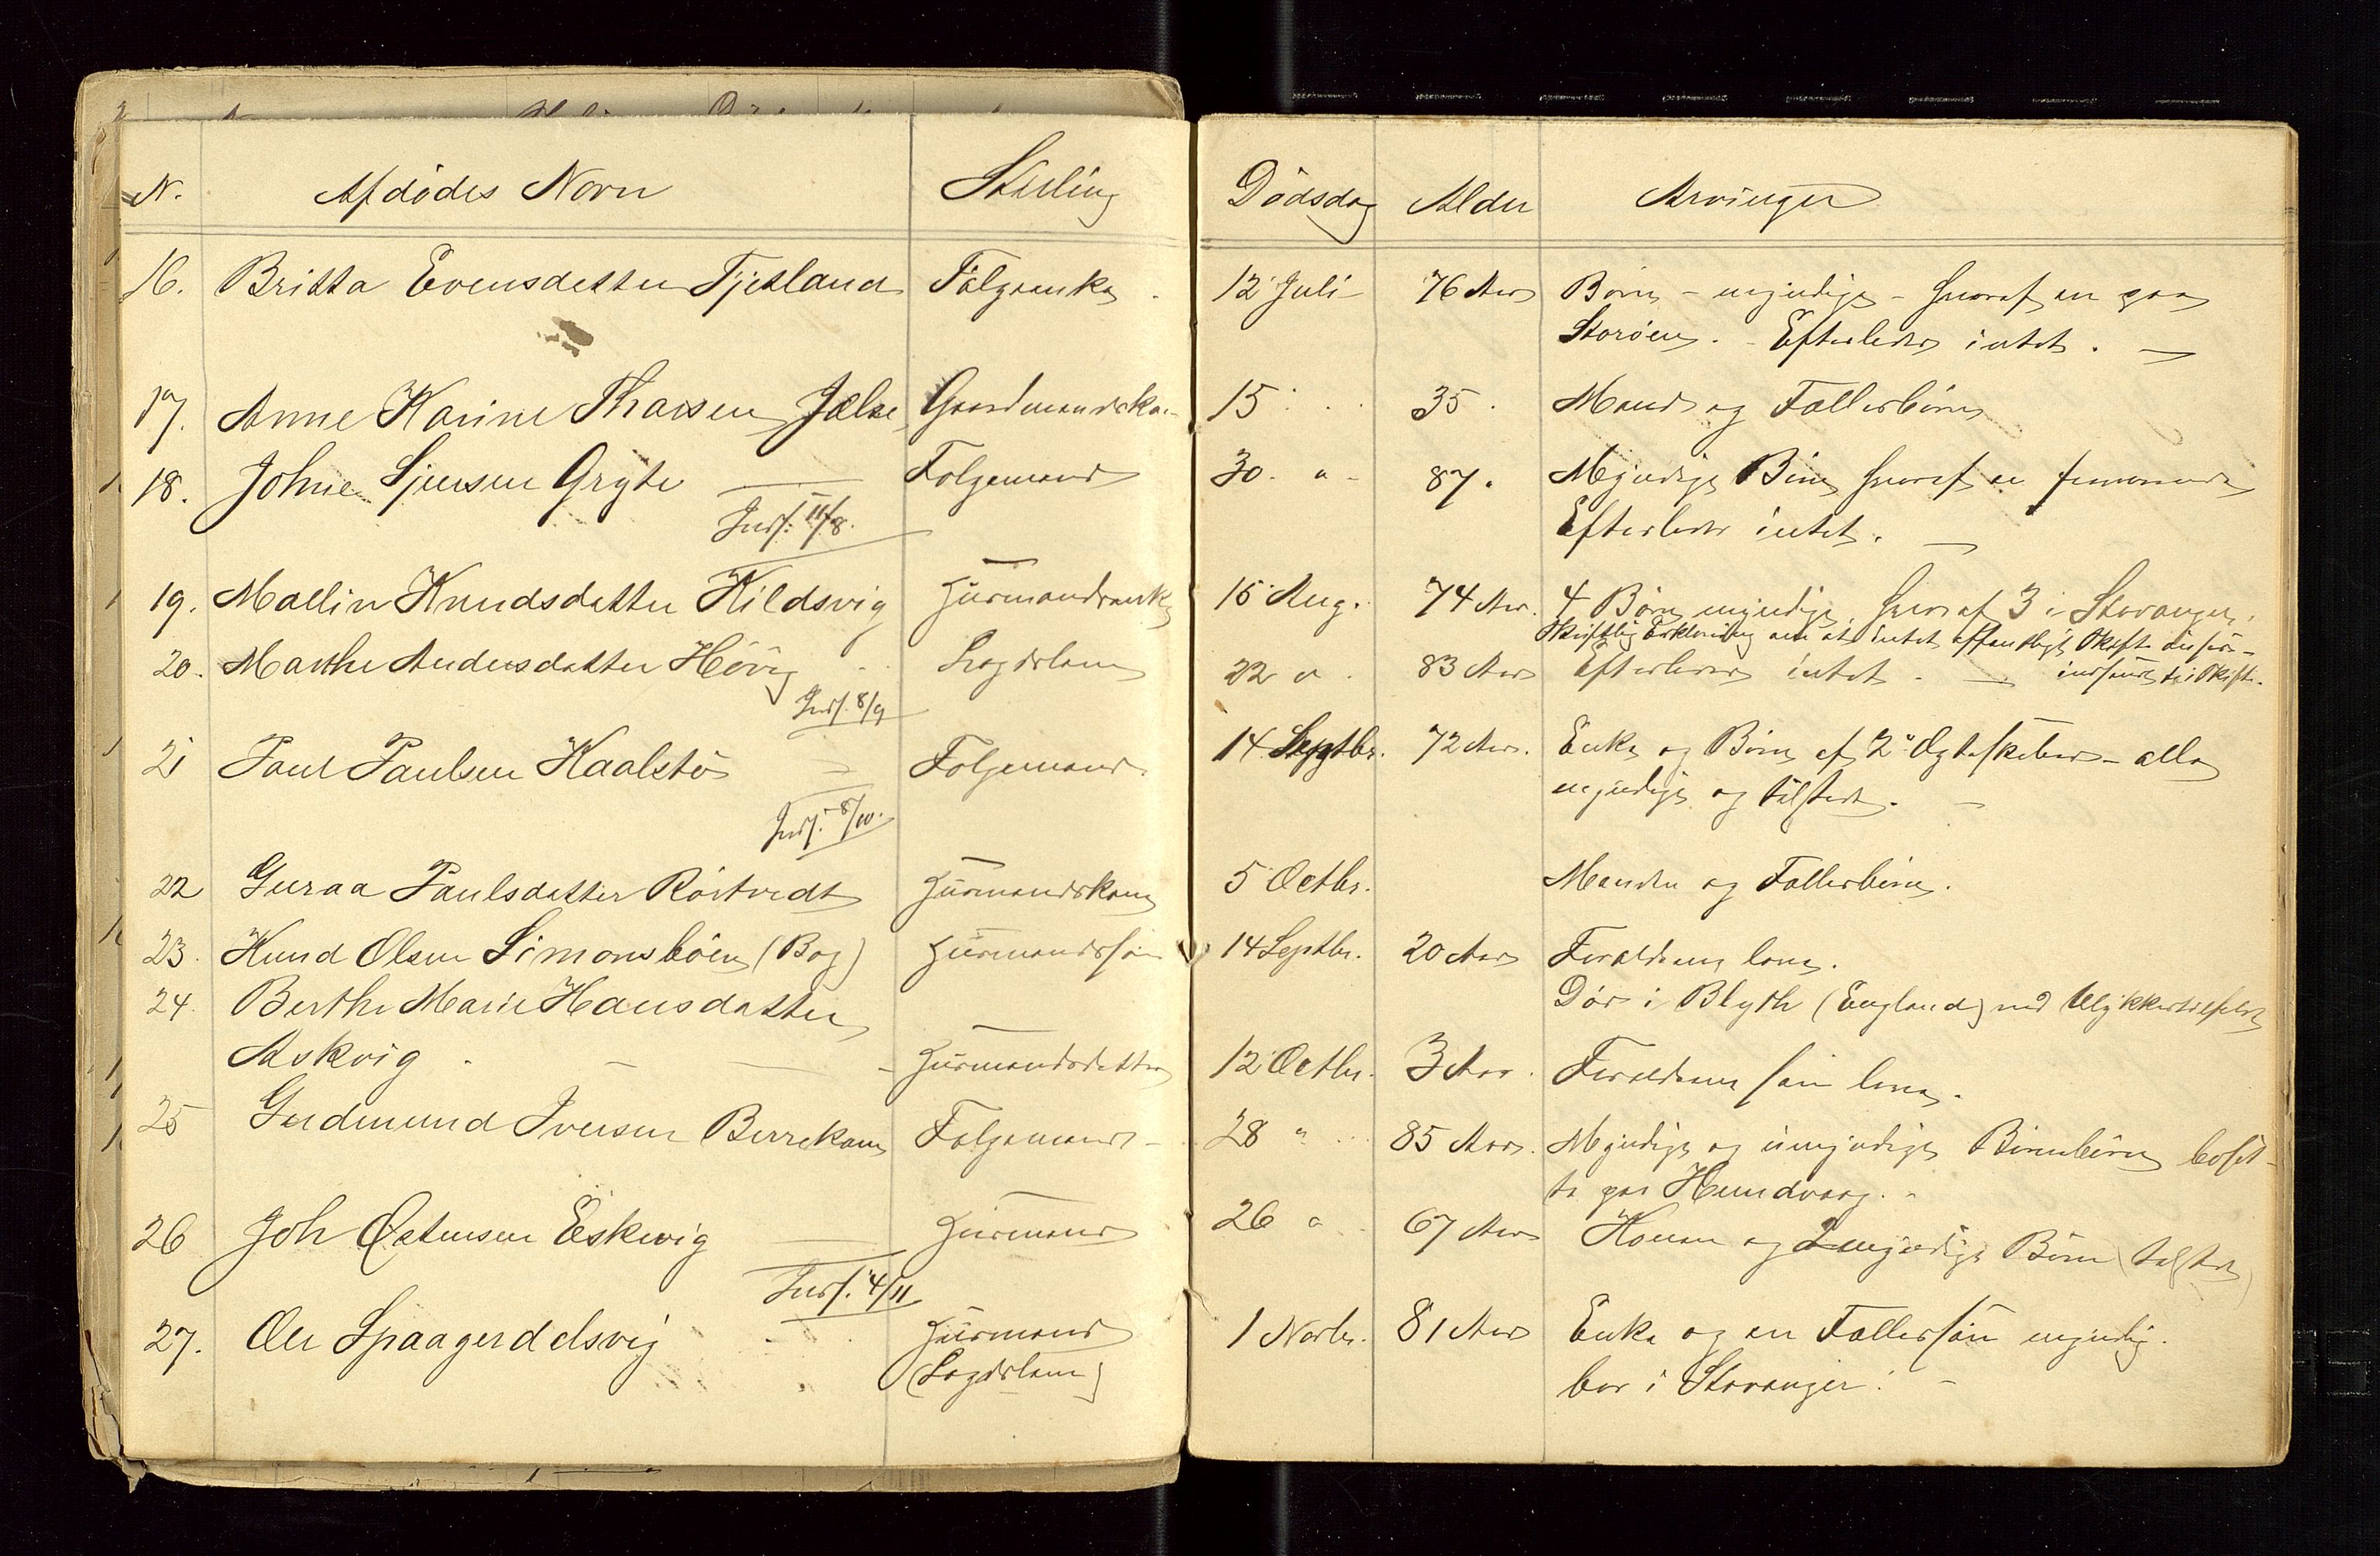 N. Afdødes Navn Stilling Dødsdag Alder Arvinger
16. Britta Evensdatter Tjetland Folgeenke 12 Juli 76 Aar Børn - myndige - hvoraf en paa
Storøen. - Efterlader intet. -
17. Anne Karine Thorsen Jelse Gaardmandskone 15 35. Mand og Fællesbørn
18. Johne Sjursen Gryte Folgemand 30. " 87. Myndige Børn hvoraf en
Indf. 11/8. Efterlader intet. -
19. Mallin Knudsdatter Kildsvig Huusmandsenke 16 Aug. 74 Aar. 4 Børn myndige, hvoraf 3 i Stavanger.
Skriftlig Erklæring om at intet offentligt Skifte
20. Marthe Andersdatter Høvig Lægdslem 22 " 83 Aar Efterlader intet. -
Indf. 8/9
21 Paul Paulsen Kaalstø Folgemand. 14 Septbr. 72 Aar. Enke og Børn af 2 Ægteskaber - alle
myndige og tilstede. -
Indf. 8/10.
22 Guraa Paulsdatter Røstvedt Huusmandskone 5 Octbr. Manden og Fællesbørn.
23. Knud Olsen Simonsbøen (Bog) Huusmandssøn 14 Septbr. 20 Aar Forældrene leve.
24. Berthe Marie Hansdatter Død i Blyth (England) ved Ulykkestilfælde
Askvig - Huusmandsdatter 12 Octbr. 3 Aar. Forældrene leve.
25 Gudmund Iversen Berrekam Folgemand - 28 " 85 Aar. Myndige og umyndige Børnebørn bosat-
te paa Hundvaag. -
26 Joh Østensen Eskevig Huusmand 26 " 67 Aar Konen og 2 myndige Børn (tilstede)
Indf. 4/11
27. Ole Spaagerd elsvig Huusmand 1 Novbr. 81 Aar Enke og en Fællessøn myndig.
(Lægdslem) bor i Stavanger. -